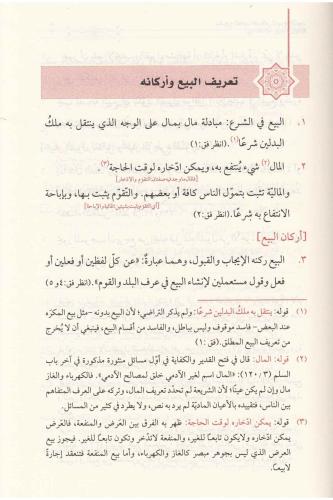 تعريف البيع وأركانه
١. البيع في الشرع: مبادلة مال بمال على الوجه الذي ينتقل به ملكُ
البدلين شرعًا(١). (انظر فق:١)
٢. المال(٢) شيء يُنتفع به، ويمكن ادّخاره لوقت الحاجة(٣)
والماليّة تثبت بتموّل الناس كافة أو بعضهم. والتقوّم يثبت بها، وبإباحة
الانتفاع به شرعًا. (انظر فق:٢)
[أركان البيع]
٣. البيع ركنه الإيجاب والقبول، وهما عبارة: «عن كلّ لفظين أو فعلين أو
فعل وقول مستعملين لإنشاء البيع في عرف البلد والقوم». (انظر فق:٤ و٥)
(١) قوله: ينتقل به ملك البدلين شرعًا: ولم يذكر التراضي؛ لأن البيع بدونه -مثل بيع المكرَه
عند البعض- فاسد موقوف وليس بباطل، والفاسد من أقسام البيع، فينبغي أن لا يُخرج
من تعريف البيع المطلق. (فق:١)
(٢) قوله: المال: قال في فتح القدير والكفاية في أوّل مسائل منثورة مذكورة في آخر باب
السلم (١٢٠/٣): «المال اسم لغير الآدمي خلق لمصالح الآدمي». فالكهرباء والغاز
مال وإن لم يكن عينًا؛ لأن الشريعة لم تحدّد تعريف المال، وتركه على العرف المتفاهم
بين الناس، فتقييده بالأعيان الماديّة لم يرد به نص، ولا يطرد في كثير من المسائل.
(٣) قوله: يمكن ادّخاره لوقت الحاجة: ظهر به الفرق بين العرض والمنفعة، فالعَرض
يمكن ادّخاره ولايكون تابعًا للغير، والمنفعة لاتدّخر وتكون تابعًا للغير. فيجوز بيع
العرض الذي ليس بجوهر مبصر كالغاز والكهرباء، وأما بيع المنفعة فتنعقد إجارةً
لابيعًا.